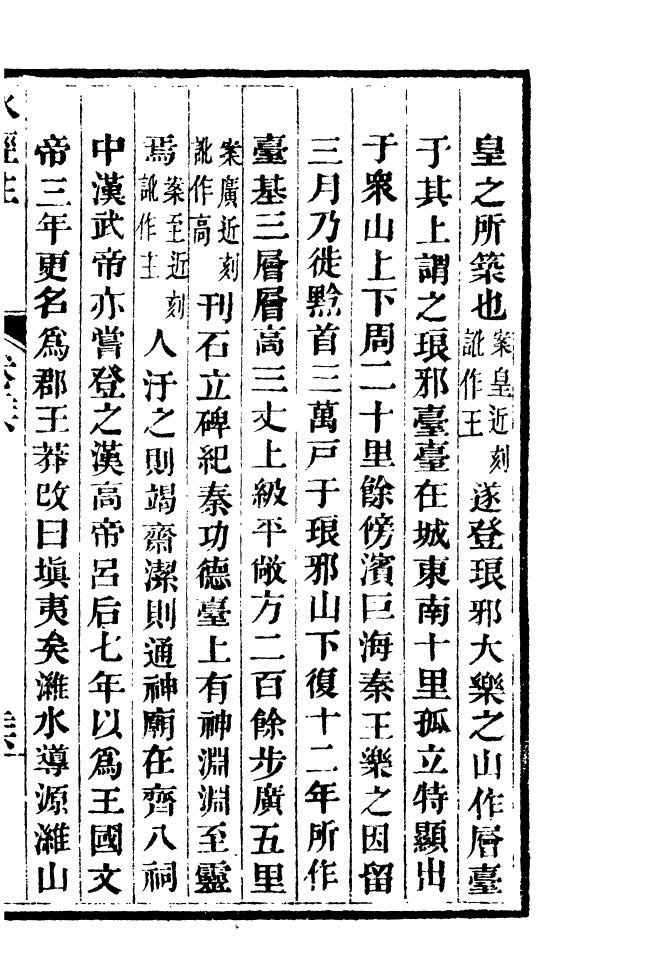 皇之所築也案皇近刻訛作王遂登琅邪大樂之山作層臺
于其上謂之琅邪臺臺在城東南十里孤立特顯出
于衆山上下周二十里餘傍濱巨海秦王樂之因留
三月乃徙黔首三萬戸于琅邪山下復十二年所作
臺基三層層高三丈上級平敞方二百餘步廣五里
案廣近刻訛作高刊石立碑紀秦功德臺上有神淵淵至靈
焉案至近刻訛作主人汙之則竭齋潔則通神廟在齊八祠
中漢武帝亦嘗登之漢高帝呂后七年以爲王國文
帝三年更名爲郡王莽改曰塡夷矣濰水導源濰山
水經注